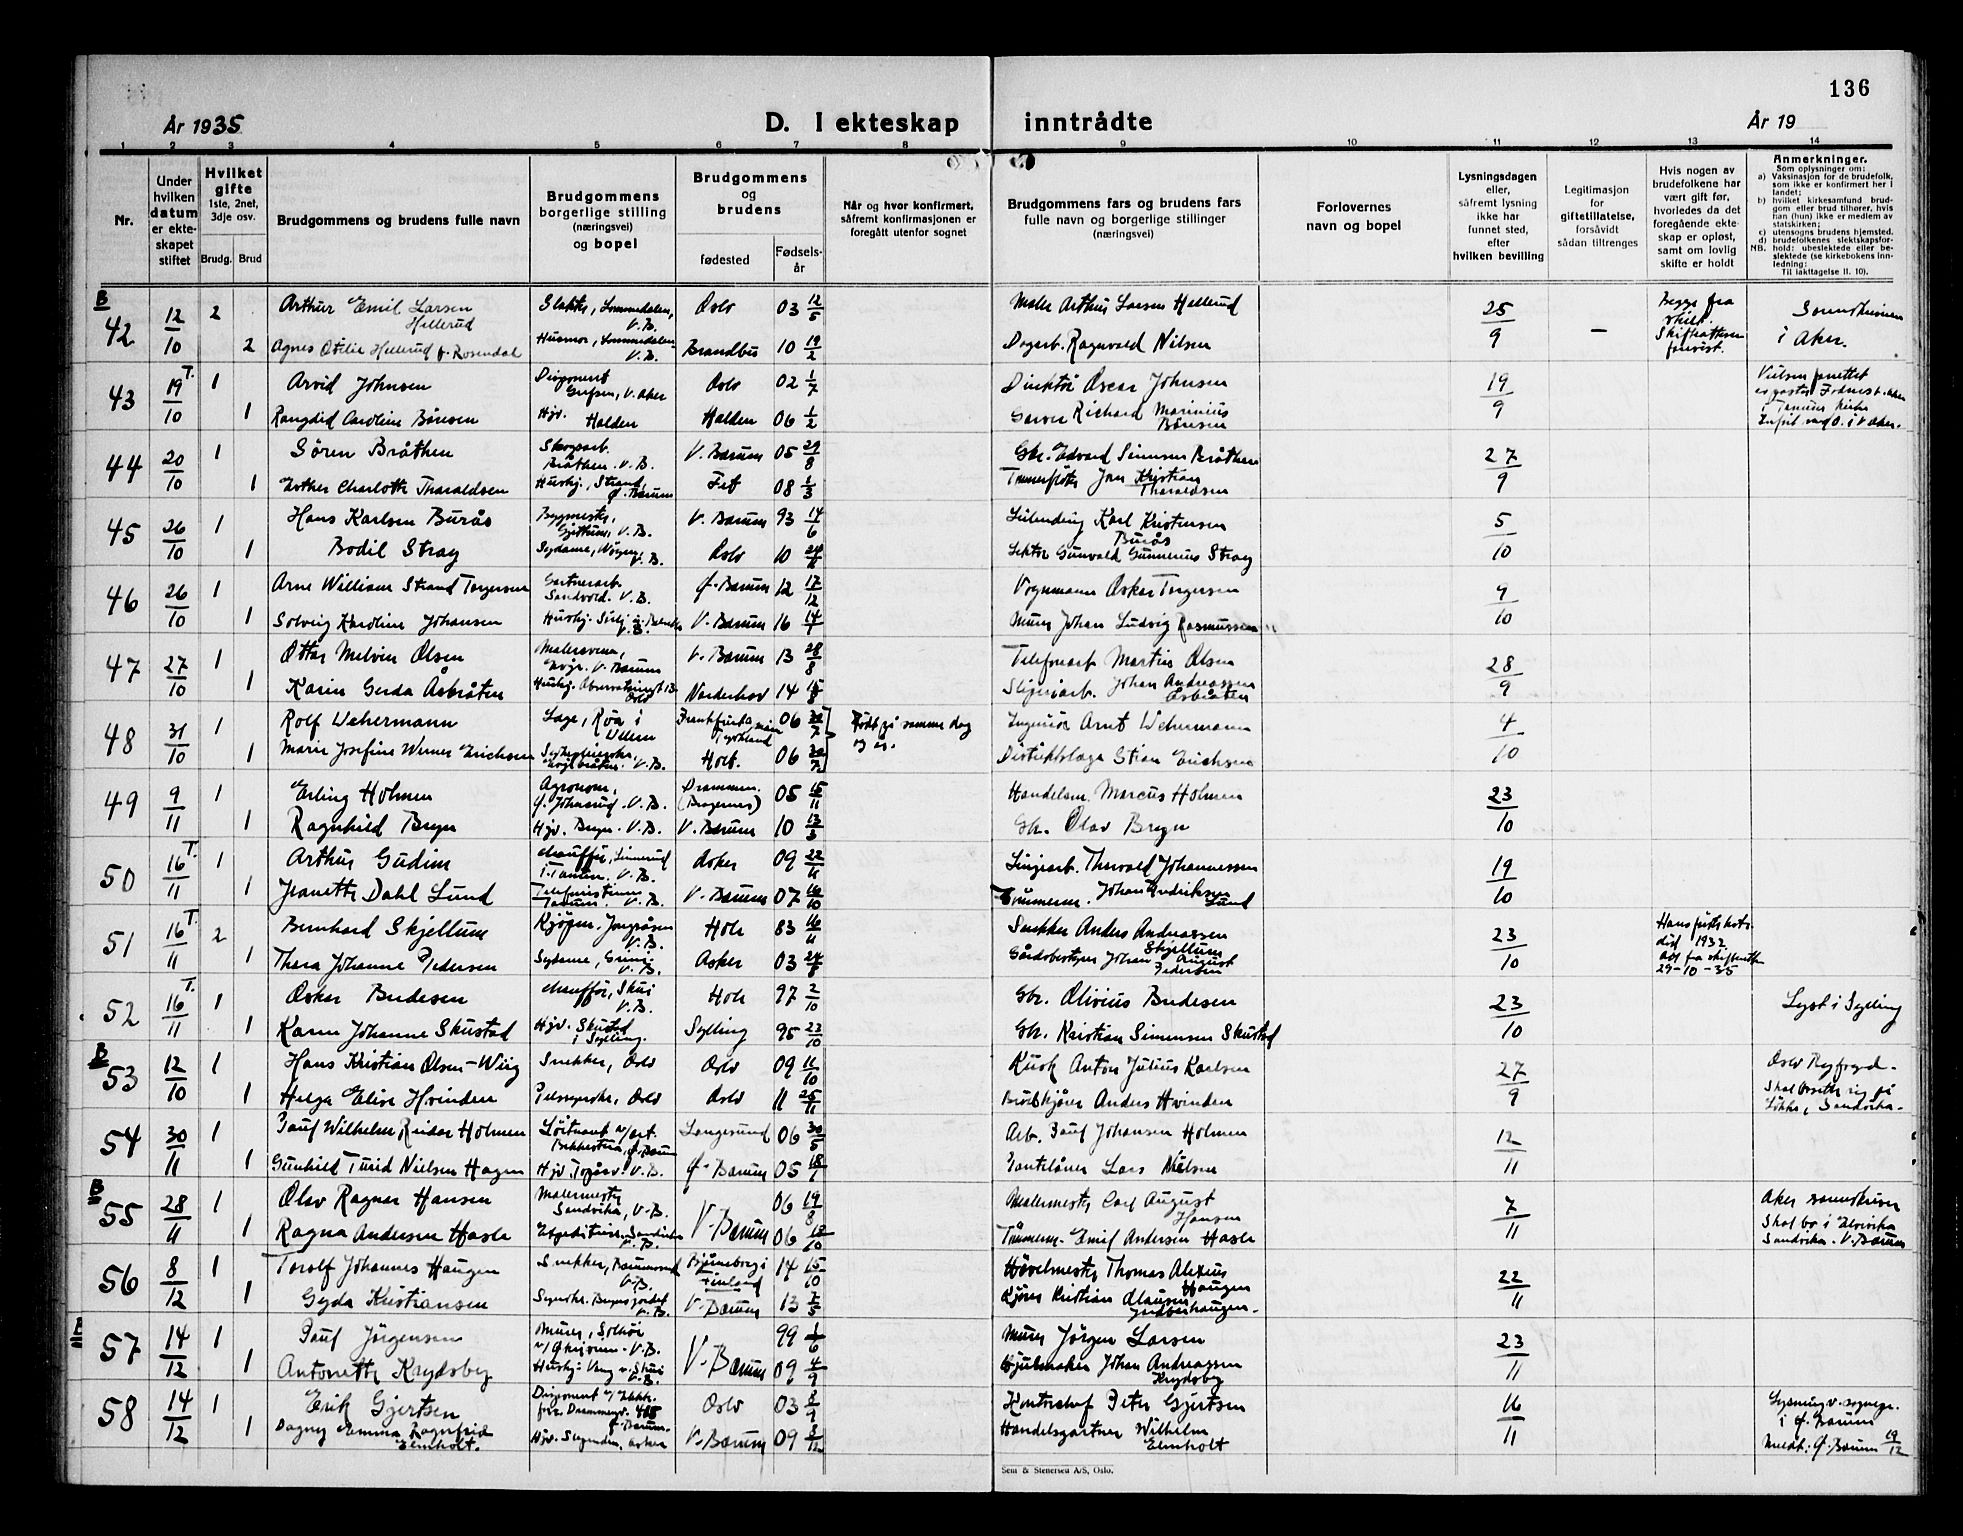 136
År 1935
D. I ekteskap inntrådte
År 19
1 2 3 4 5 6 7 8 9 10 11 12 13 14
Nr.
Under hvilken datum er ekteskapet stiftet
Hvilket gifte 1ste, 2net, 3dje osv.
Brudg. Brud
Brudgommens og brudens fulle navn
Brudgommens borgerlige stilling (næringsvei) og bopel
Brudgommens og brudens
fødested
Fødselsår
Når og hvor konfirmert, såfremt konfirmasjonen er foregått utenfor sognet
Brudgommens fars og brudens fars fulle navn og borgerlige stillinger (næringsvei)
Forlovernes navn og bopel
Lysningsdagen eller, såfremt lysning ikke har funnet sted, efter hvilken bevilling
Legitimasjon for giftetillatelse, forsåvidt sådan tiltrenges
Hvis nogen av brudefolkene har vært gift før, hvorledes da det foregående ekteskap er opløst, samt om lovlig skifte er holdt
Anmerkninger.
Som oplysninger om:
a) Vaksinasjon for de brudefolk, som ikke er konfirmert her i landet;
b) hvilket kirkesamfund brudgom eller brud tilhører, hvis han (hun) ikke er medlem av statskirken;
c) utensogns brudens hjemsted.
d) brudefolkenes slektskapsforhold: ubeslektede eller beslektede (se kirkebokens innledning:
NB.
Til iakttagelse II. 10).
B 42 12/10 2 Arthur Emil Larsen Hellerud Slakter, Lommedalen, V.B. Oslo 03 12/5 Maler Arthur Larsen Hellerud 25/9 — Begge fra skilt. Skifteattester forevist. Sorenskriveren i Aker.
2 Agnes Otilie Hellerud f. Rosendal Husmor, Lommedalen V.B. Brandbu 10 19/2 Dagarb. Ragnvald Nilsen
43 19/10 T. 1 Arvid Johnsen Disponent Grefsen, V. Aker Oslo 02 1/7 Direktør Oscar Johnsen 19/9
1 Rangdid Caroline Børresen Hjv. Halden Halden 06 1/2 Garver Richard Marinius Børresen
44 20/10 1 Søren Bråthen Skogsarb. Bråthen. V.B. V. Bærum 05 29/8 Gbr. Edvard Simensen Bråthen 27/9
1 Esther Charlotte Tharaldsen Hushj., Strand, Ø. Bærum Fet 08 1/3 Tømmerfløter Jon Kristian Tharaldsen
45 26/10 1 Hans Karlsen Burås Byggmester, Gjettum, V.B. V. Bærum 93 14/6 Karl Kristensen Burås 5/10
1 Bodil Stray Sydame, V.B. Oslo 10 Lektor Gunvald Gunnerius Stray
46 26/10 1 Arne William Strand Torgersen Gartnerarb. Sandvold. V.B. Ø. Bærum 12 17/12 Vognmann Oskar Torgersen 9/10
1 Solveig Karoline Johansen Hushj. V.B. V. Bærum 16 Murer Johan Ludvig Rasmussen
47 27/10 1 Ottar Melvin Olsen Malersvenn, V. Bærum V. Bærum 13 28/8 Telefonarb. Martin Olsen 28/9
1 Karin Gerda Åsbråten Hushj. Observatoriegt 13 Oslo Norderhov 14 15/8 Sliperiarb. Johan Andreassen Åsbråten
48 31/10 1 Rolf Wehermann Læge, Røa i V. Aker Frankfurt a. main Tyskland 06 30/7 Født på samme dag og år. Ingeniør Arnt Wehermann 4/10
1 Marie Josefine Werner Erichsen V.B. Holt. 06 30/7 Distriktslæge Stian Erichsen
49 9/11 1 Erling Holmen Agronom, V.B. Drammen. (Bragernes) 05 15/11 Handelsm. Marcus Holmen 23/10
1 Ragnhild Bryn Hjv. Bryn. V.B. V. Bærum 10 13/3 Gbr. Olav Bryn
50 16/11 T. 1 Arthur Gudim Chauffør, i Tanum. V.B. Asker 09 22/11 Thorvald Johannessen 19/10
1 Jeanette Dahl Lund Telefonistinne Tanum. V.B. V. Bærum 07 16/10 Tømmerm. Johan Fredriksen Lund
51 16/11 T. 2 Bernhard Skjellum Kjøpm. V.B. Hole 83 16/11 Snekker Anders Andreassen Skjellum 23/10 Hans første kone død 1932 Att fra skifterett 29-10-35
1 Thora Johanne Pedersen Sydame, Grini V.B. Asker 03 Gårdsbestyrer Johan August Pedersen
52 16/11 T. 1 Oskar Budesen Chauffør, Skui V.B. Hole 97 2/10 Gbr. Olivius Budesen 23/10 Lyst i Sylling
1 Karen Johanne Skustad Hjv. Skustad i Sylling. Sylling 95 23/10 Gbr. Kristian Simensen Skustad
B 53 12/10 1 Hans Kristian Olsen-Wiig Snekker, Oslo Oslo 09 11/10 Kusk Anton Julius Karlsen 27/9 Oslo Byfogd. Skal bosette sig på Løkke, Sandvika.
1 Helga Elise Hvinden Pelssyerske, Oslo Oslo 11 25/11 Brødkjører Anders Hvinden
54 30/11 1 Pauf Wilhelm Reidar Holmen Løitnant v/art. Bekkestua, Ø. Bærum Langesund 06 30/5 Arb. Pauf Johansen Holmen 12/11
1 Gunhild Turid Nielsen Hagen Hjv. V.B. Ø. Bærum 05 Pantelåner Lars Nielsen
B 55 28/11 1 Olav Ragnar Hansen Malermester Sandvika, V.B. V. Bærum 06 19/8 Malermester Carl August Hansen 7/11 Aker sorenskriver Skal bo i Sandvika. V. Bærum
1 Ragna Andersen Hasle Ekspeditrise, Sandvika V.B. 06 10 Tømmerm. Emil Andersen Hasle
56 8/12 1 Torolf Johannes Haugen Snekker, V.B. Bjørneborg i Finland 14 15/10 Høvelmester Thomas Alexius Haugen 22/11
1 Gyda Kristiansen Syerske. V.B. V. Bærum 13 7/5 Kjører Kristian Olausen
57 14/12 1 Pauf Jørgensen Murer, V.B. V. Bærum 99 1/6 Murer Jørgen Larsen 23/11
1 Antonette Krydsby Hushj. Vang v. Skui V.B. 09 4/9 Hjulmaker Johan Andreassen Krydsby
58 14/12 1 Erik Gjertsen Disponent Drammensv. 405 Ø. Bærum Oslo 03 8/9 Kontorchef Peter Gjertsen 16/11 Lysning v. sognepr. i Ø. Bærum Meldt: Ø. Bærum 19/12
1 Dagny Emma Ragnfrid Elmholt. Hjv. Slependen, Asker V. Bærum 09 8/12 Handelsgartner Wilhelm Elmholt
Sem & Stenersen A/S, Oslo.